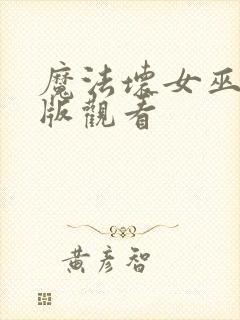 魔法壞女巫
版觀看
黃彥智